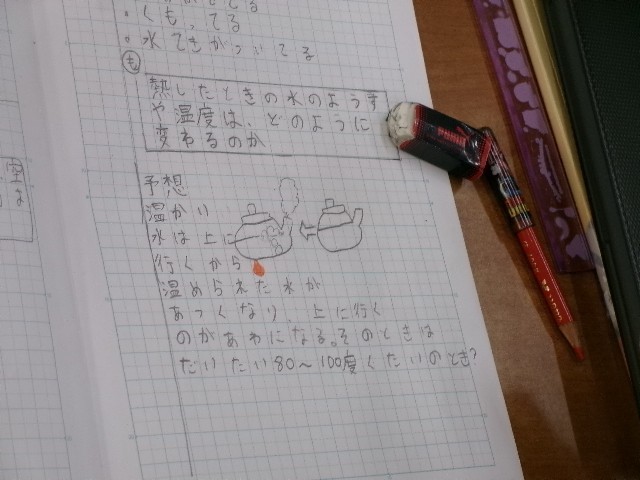 ・くもってる
・水てきがついてる
も
熱したときの水のようす
や温度は、どのように
変わるのか
予想
温かい
水は上に
行くから
温められた水が
あつくなり 上に行く
のがあわになる。そのときは
だいたい80〜100度くらいのとき?